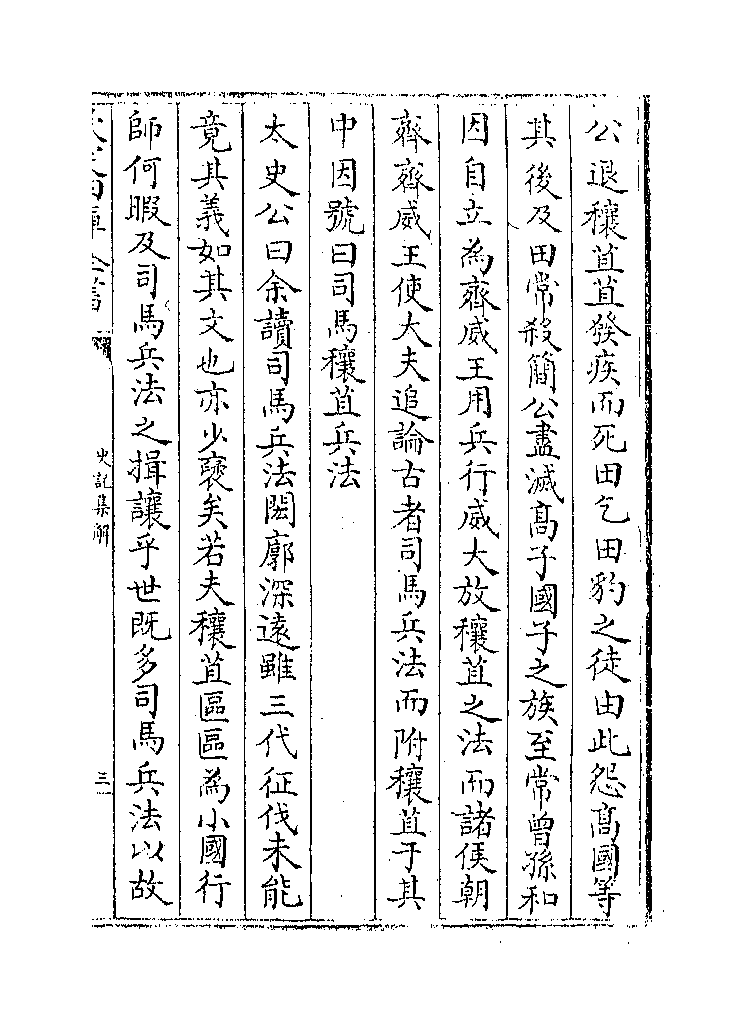 公退穰苴苴發疾而死田乞田豹之徒由此怨髙國等
其後及田常殺簡公盡滅髙子國子之族至常曾孫和
因自立為齊威王用兵行威大放穰苴之法而諸侯朝
齊齊威王使大夫追論古者司馬兵法而附穰苴于其
中因號曰司馬穰苴兵法
太史公曰余讀司馬兵法閎廓深遠雖三代征伐未能
竟其義如其文也亦少襃矣若夫穰苴區區為小國行
師何暇及司馬兵法之揖讓乎世既多司馬兵法以故
史記集解
三